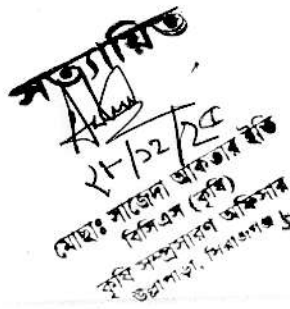 সত্যায়িত
২৮/১২/২৫
মোছাঃ সাজেদা আকতার ইতি
বিসিএস (কৃষি)
কৃষি সম্প্রসারণ অফিসার
উল্লাপাড়া, সিরাজগঞ্জ